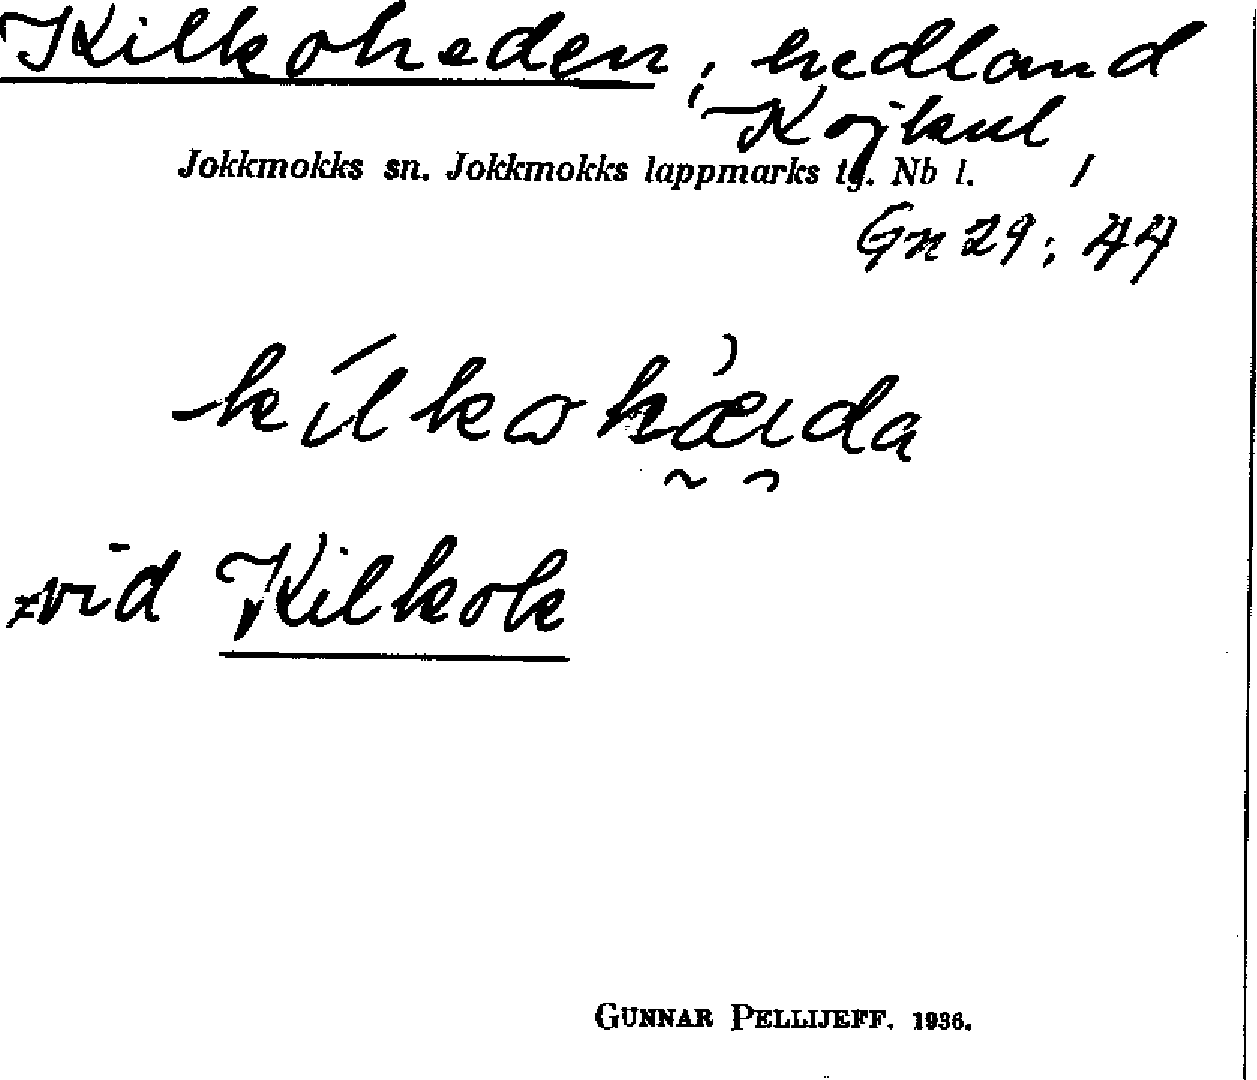 Kilkoheden, hedland
Kojkul,
Jokkmokks sn. Jokkmokks lappmarks tg. Nb l.
Gn 29: 44
kílkωhæıda
vid Kilkok
GUNNAR PELLIJEFF. 1936.